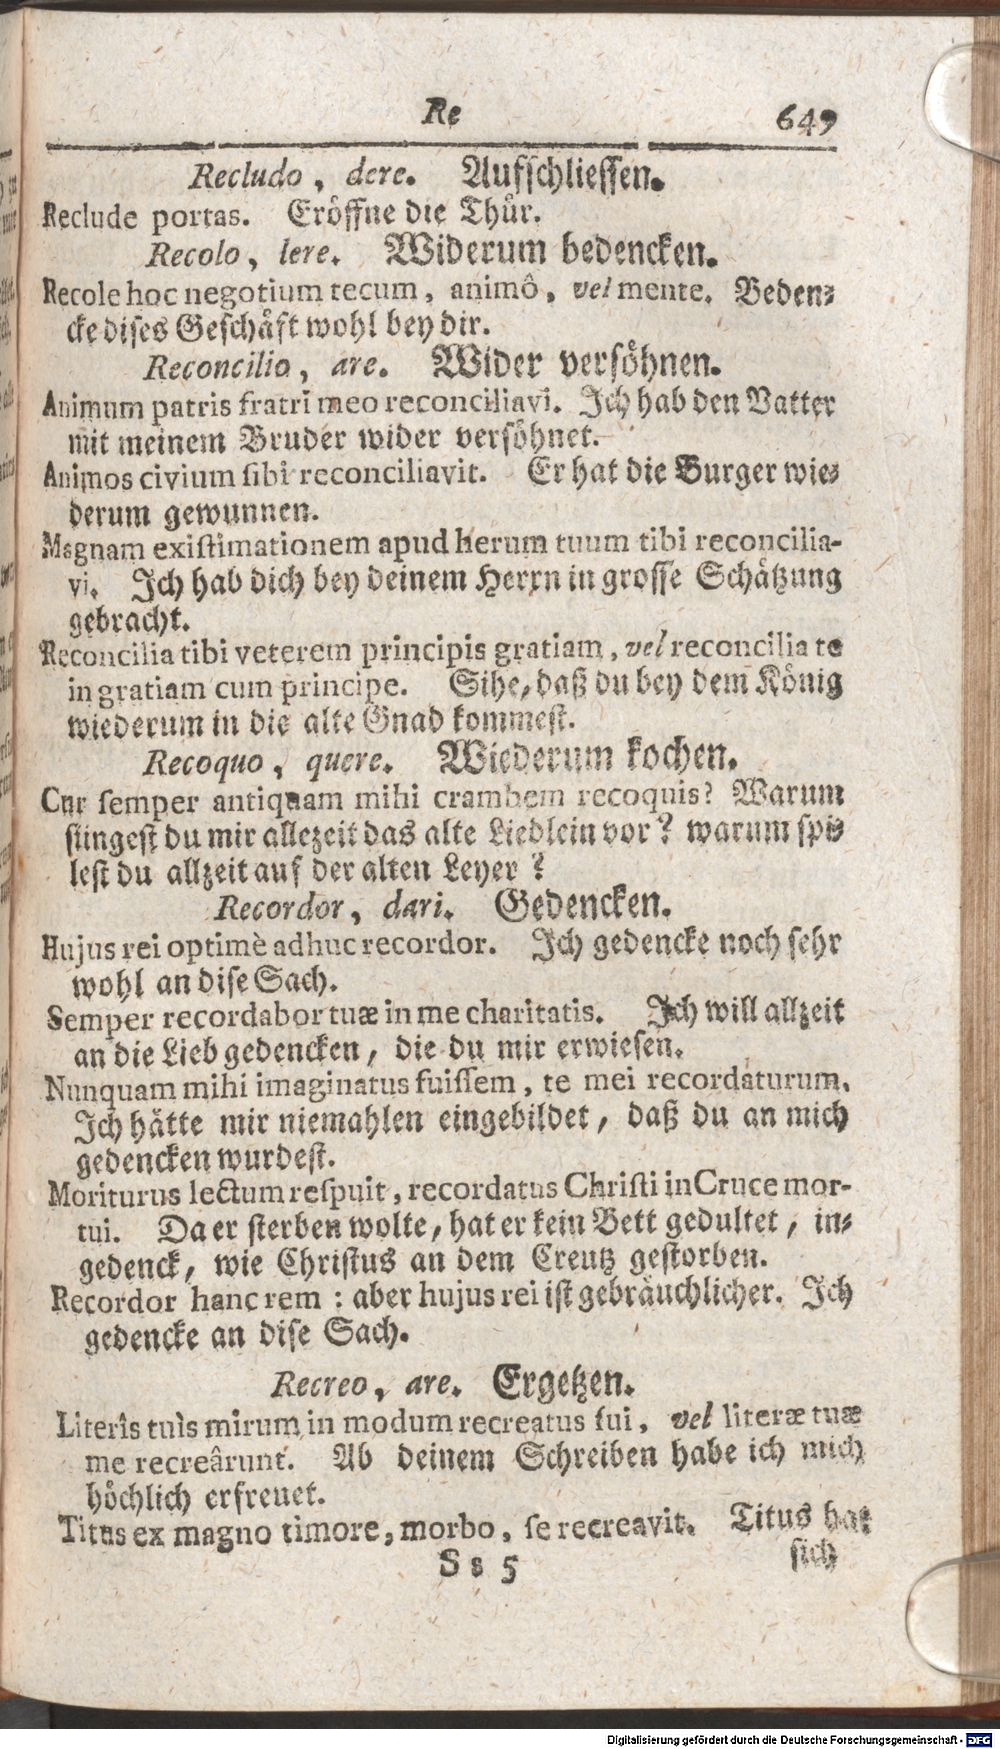 Re 649
Recludo, dere. Aufschliessen.
Reclude portas. Eröffne die Thür.
Recolo, lere. Widerum bedencken.
Recole hoc negotium tecum, animô, vel mente. Beden-
cke dises Geschäft wohl bey dir.
Reconcilio, are. Wider versöhnen.
Animum patris fratri meo reconciliavi. Ich hab den Vatter
mit meinem Bruder wider versöhnet.
Animos civium sibi reconciliavit. Er hat die Burger wie-
derum gewunnen.
Magnam existimationem apud herum tuum tibi reconcilia-
vi. Ich hab dich bey deinem Herrn in grosse Schätzung
gebracht.
Reconcilia tibi veterem principis gratiam, vel reconcilia te
in gratiam cum principe. Sihe, daß du bey dem König
wiederum in die alte Gnad kommest.
Recoquo, quere. Wiederum kochen.
Cur semper antiquam mihi crambem recoquis? Warum
singest du mir allezeit das alte Liedlein vor? warum spi-
lest du allzeit auf der alten Leyer?
Recordor, dari. Gedencken.
Hujus rei optimè adhuc recordor. Ich gedencke noch sehr
wohl an dise Sach.
Semper recordabor tuæ in me charitatis. Ich will allzeit
an die Lieb gedencken, die du mir erwiesen.
Nunquam mihi imaginatus fuissem, te mei recordaturum.
Ich hätte mir niemahlen eingebildet, daß du an mich
gedencken wurdest.
Moriturus lectum respuit, recordatus Christi in Cruce mor-
tui. Da er sterben wolte, hat er kein Bett gedultet, in-
gedenck, wie Christus an dem Creutz gestorben.
Recordor hanc rem: aber hujus rei ist gebräuchlicher. Ich
gedencke an dise Sach.
Recreo, are. Ergetzen.
Literîs tuis mirum in modum recreatus sui, vel literæ tuæ
me recreârunt. Ab deinem Schreiben habe ich mich
höchlich erfreuet.
Titus ex magno timore, morbo, se recreavit. Titus hat
Ss 5 sich
Digitalisierung gefördert durch die Deutsche Forschungsgemeinschaft - DFG